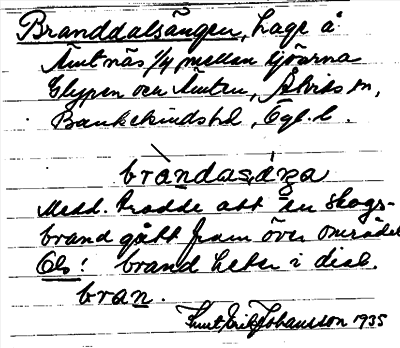 Branddalsängen, hage å
Ämtnäs 1/4 mellan sjöarna
Glypen och Ämten, Åtvids sn,
Bankekinds hd, Ögl. l.
brandasäŋa
Medd. trodde att en skogs-
brand gått fram över området
Obs! brand heter i dial.
bran.
Knut Erik Johansson 1935